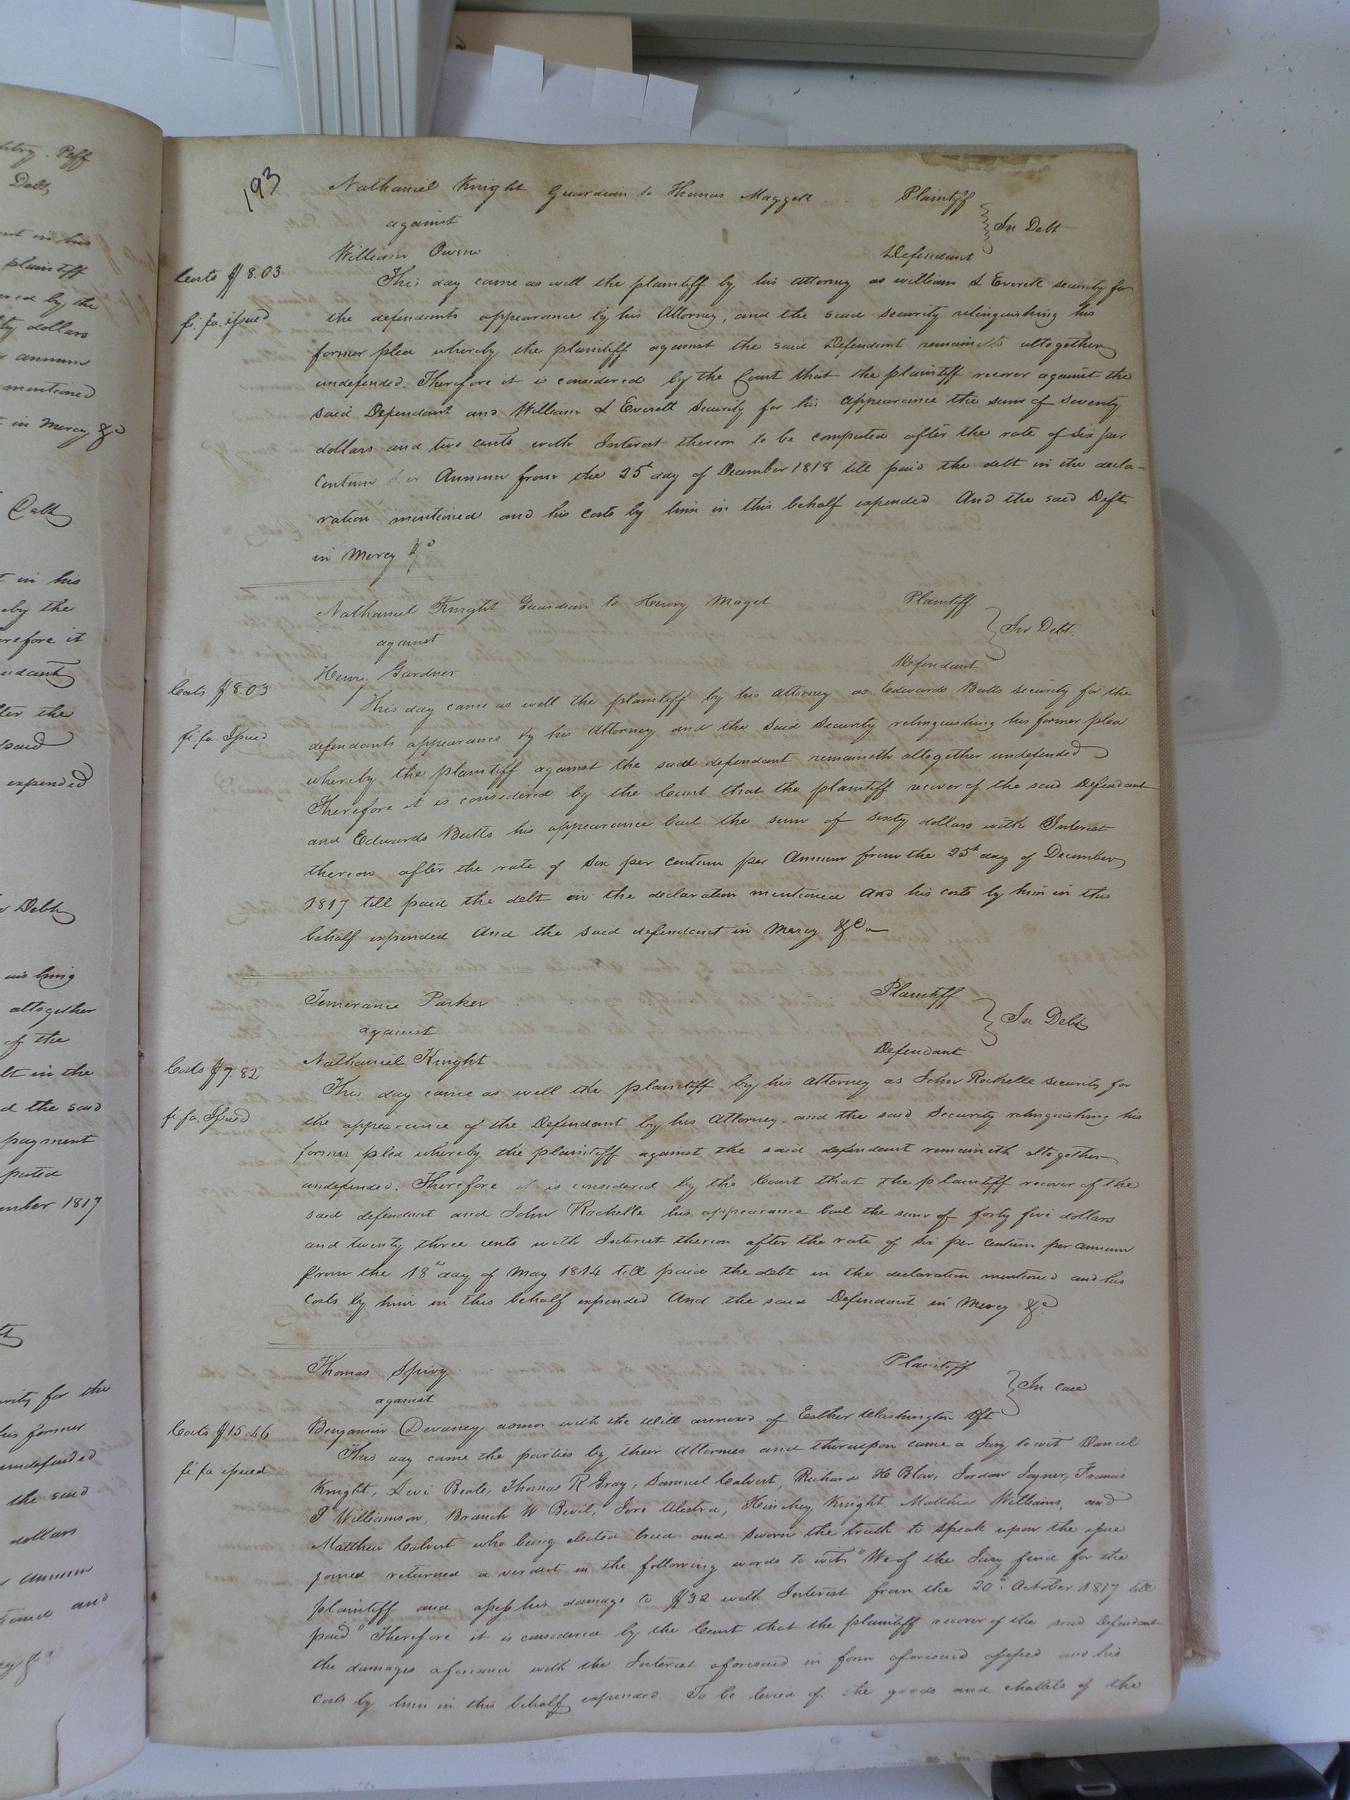 193
Nathaniel Knight Guardian to Thomas Maggett Plaintiff
against In Debt
William Owen Defendant
Costs $8.03
fi. fa. issued
This day came as well the plaintiff by his attorney as William L Everett security for
the defendants appearance by his Attorney, and the said security relinquishing his
former plea whereby the plaintiff against the said Defendant remaineth altogether
undefended. Therefore it is considered by the Court that the plaintiff recover against the
said Defendant and William L Everett Security for his appearance the sum of seventy
dollars and two cents with Interest thereon to be computed after the rate of Six per
Centum per Annum from the 25t day of December 1818 till paid the debt in the decla-
ration mentioned and his costs by him in this behalf expended And the said Deft
in Mercy &c
Nathaniel Knight Guardian to Henry Maget Plaintiff
against In Debt.
Henry Gardner Defendant
Costs $8.03
fi. fa. Issued
This day came as well the plaintiff by his attorney as Edwards Butts security for the
defendants appearance by his Attorney and the said Security relinquishing his former plea
whereby the plaintiff against the said defendant remaineth altogether undefended
Therefore it is considered by the Court that the plaintiff recover of the said Defendant
and Edwards Butts his appearance bail the sum of sixty dollars with Interest
thereon after the rate of Six per centum per Annum from the 25t day of December
1817 till paid the debt in the declaration mentioned and his costs by him in this
behalf expended And the said defendant in Mercy &c
Temperance Parker Plaintiff
against In Debt
Nathaniel Knight Defendant
Costs $7.82
fi. fa. Issued
This day came as well the plaintiff by his attorney as John Rochelle security for
the appearance of the Defendant by his Attorney and the said Security relinquishing his
former plea whereby the plaintiff against the said defendant remaineth altogether
undefended. Therefore it is considered by the Court that the plaintiff recover of the
said defendant and John Rochelle his appearance bail the sum of forty five dollars
and twenty three cents with Interest thereon after the rate of Six per centum per annum
from the 18th day of May 1814 till paid the debt in the declaration mentioned and his
costs by him in this behalf expended And the said Defendant in Mercy &c
Thomas Spivy Plaintiff
against In case
Benjamin Devaney admor with the Will annexed of Esther Washington Deft
Costs $15.46
fi fa issued
This day came the parties by their attornies and thereupon came a Jury to wit Daniel
Knight, Levi Beale, Thomas R Gray, Samuel Calvert, Richard H Blow, Jordan Joyner, Francis
J Williamson, Branch W Bevil, Hinchey Knight, Matthew Williams, and
Matthew Calvert who being elected tried and sworn the truth to speak upon the issue
joined returned a verdict in the following words to wit "We of the Jury find for the
plaintiff and assess his damage to $32 with Interest from the 20th October 1817 till
paid" Therefore it is considered by the Court that the plaintiff recover of the said Defendant
the damages aforesaid with the Interest aforesaid in form aforesaid assessed and his
costs by him in this behalf expended To be levied of the goods and chattels of the